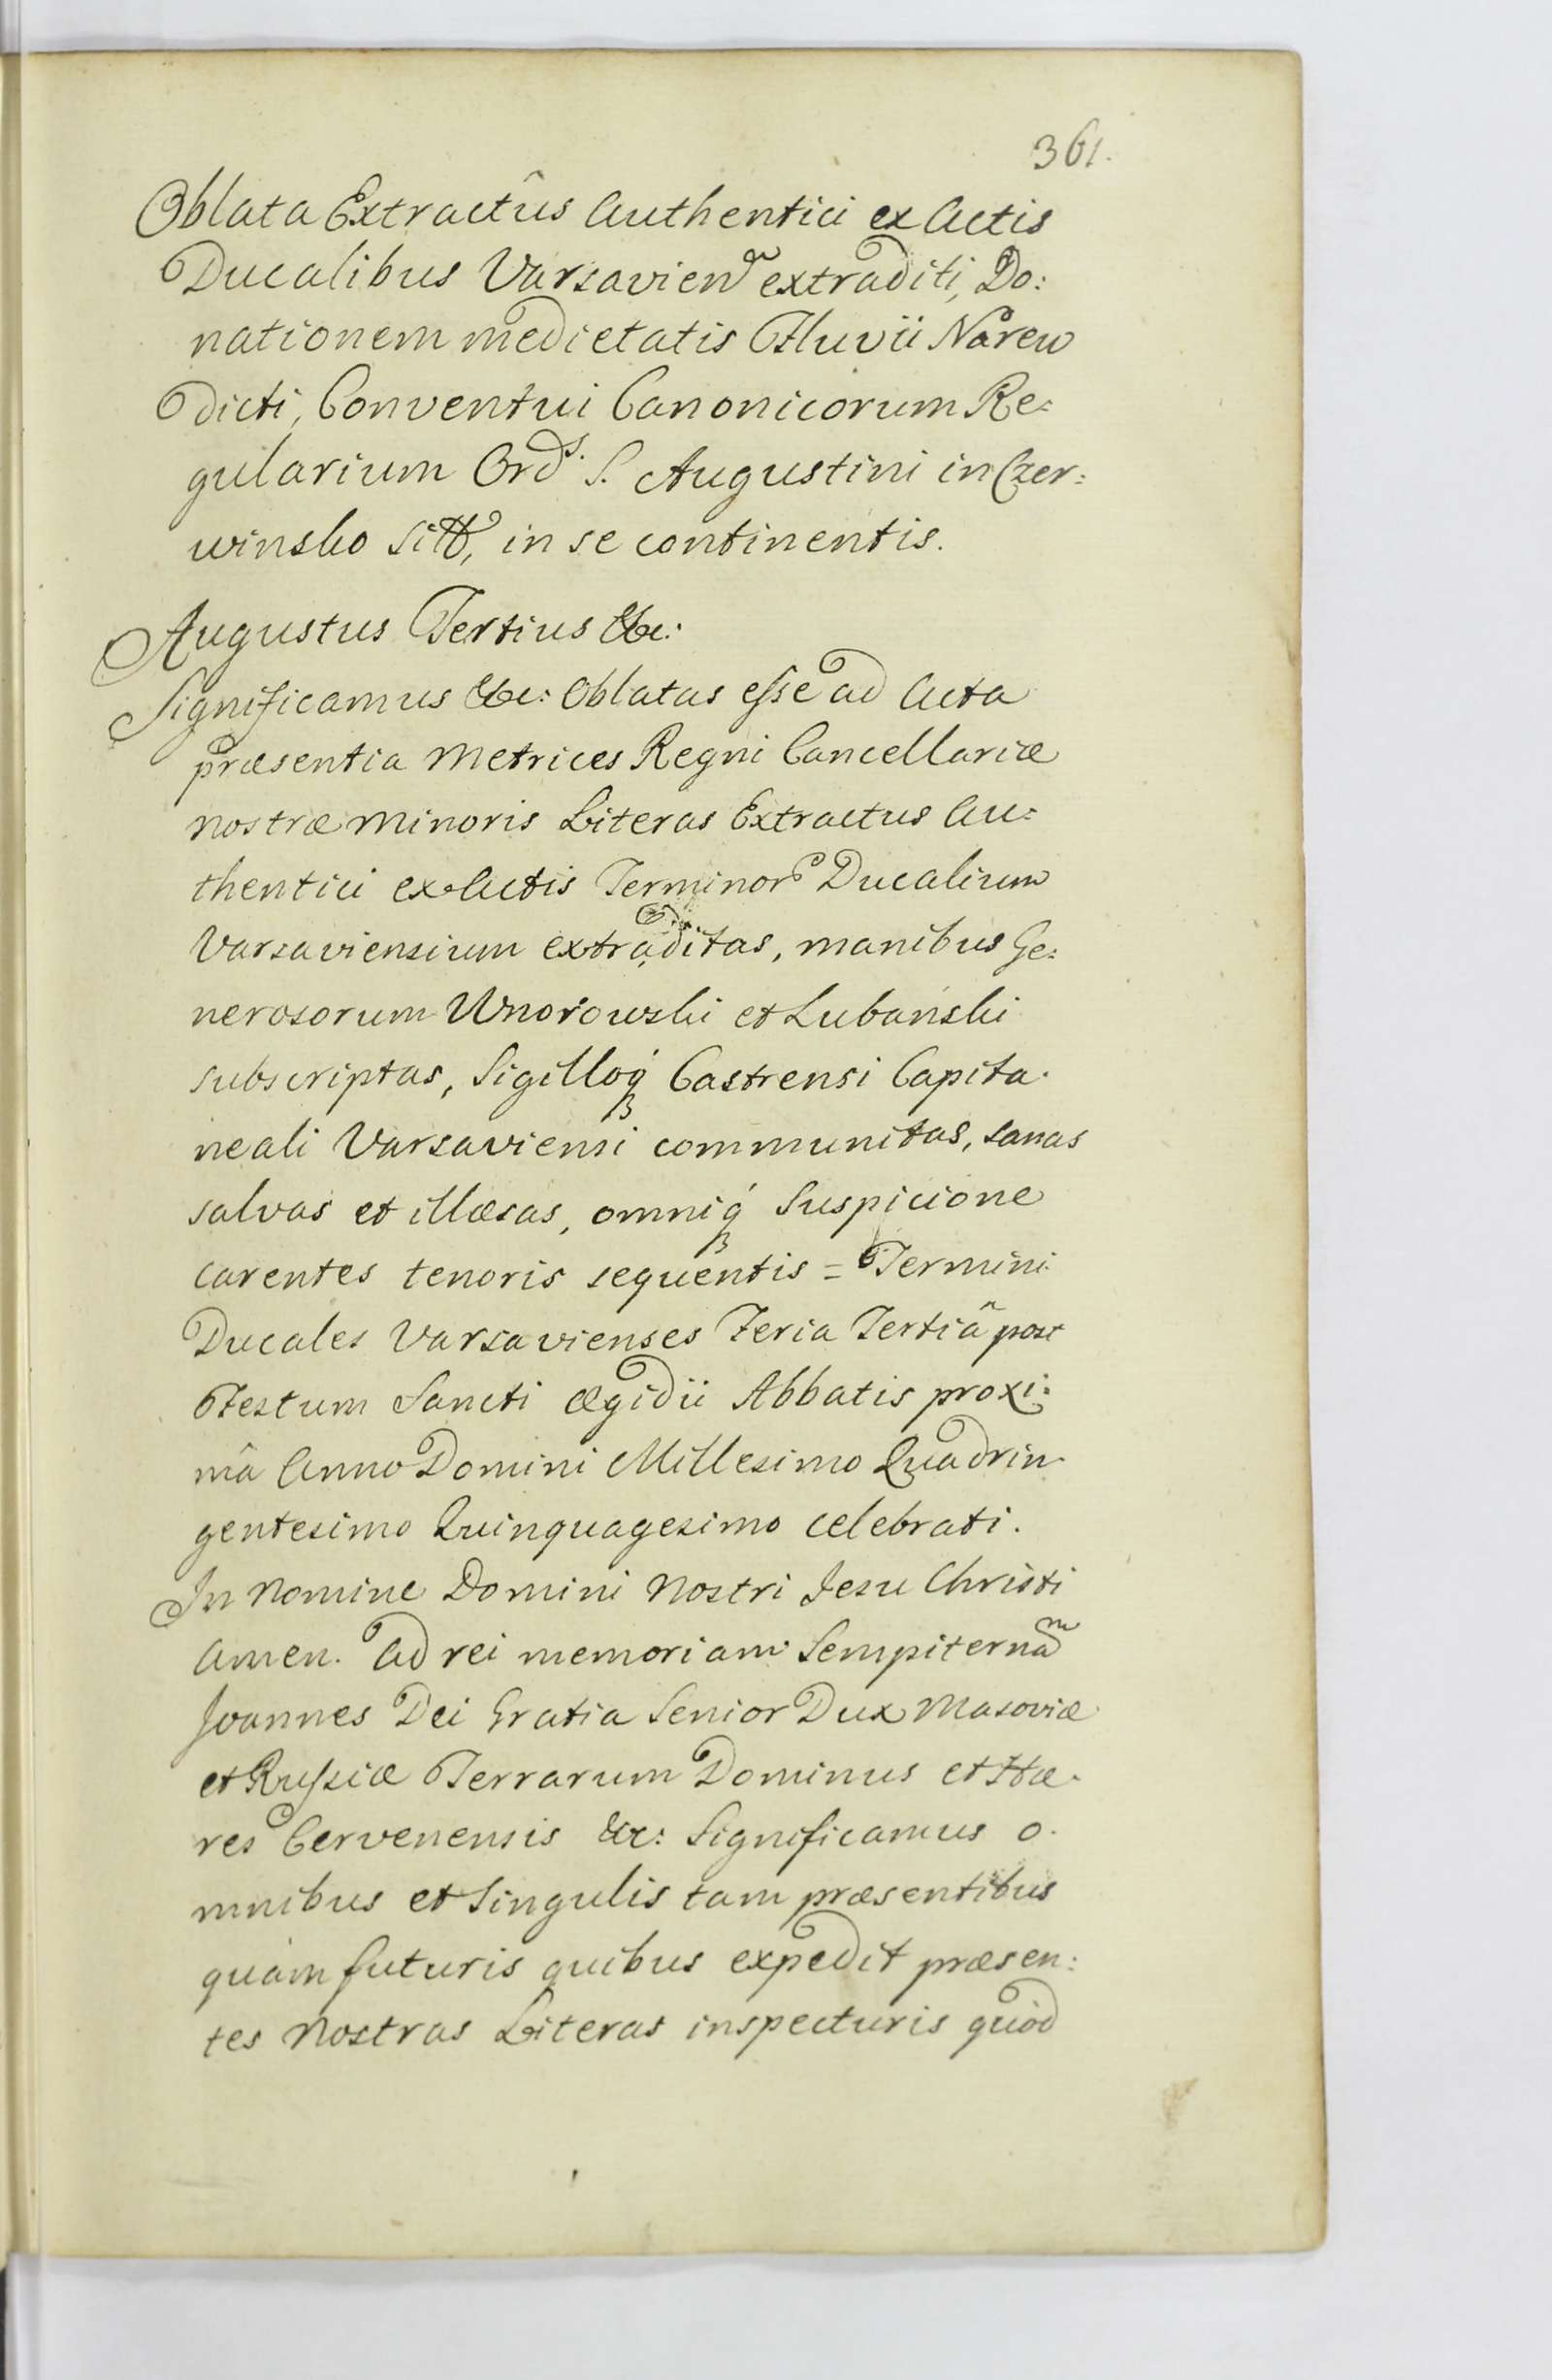 361.
Oblata Extractûs Authentici ex Actis
Ducalibus Varsavien extraditi, Do:
nationem medietatis Fluvii Narew
dicti, Conventui Canonicorum Re:
gularium Ord̃s. S. Augustini in Czer:
winsko in se continentis.
Augustus Tertius &c:
Significamus &c: Oblatas esse ad Acta
præsentia Metrices Regni Cancellariæ
nostræ minoris Literas Extractus Au:
thentici ex Actis Terminor Ducalium
Varsaviensium extraditas, manibus Ge:
nerosorum Wnorowski et Lubański
subscriptas, Sigilloq́ Castrensi Capita
neali Varsaviensi communitas, sanas
salvas et illæsas, omniq́ Suspicione
carentes tenoris sequentis = Termini
Ducales Varsavienses Feria Tertiâ post
Festum Sancti Ægidii Abbatis proxi:
mâ Anno Domini Millesimo Quadrin
gentesimo Quinquagesimo celebrati.
In Nomine Domini Nostri Jesu Christi
Amen. Ad rei memoriam Sempiternam
Joannes Dei Gratia Senior Dux Masoviæ
et Russiæ Terrarum Dominus et Hæ
res Cervenensis &c: Significamus o
mnibus et Singulis tam præsentibus
quàm futuris quibus expedit præsen:
tes Nostras Literas inspecturis quòd